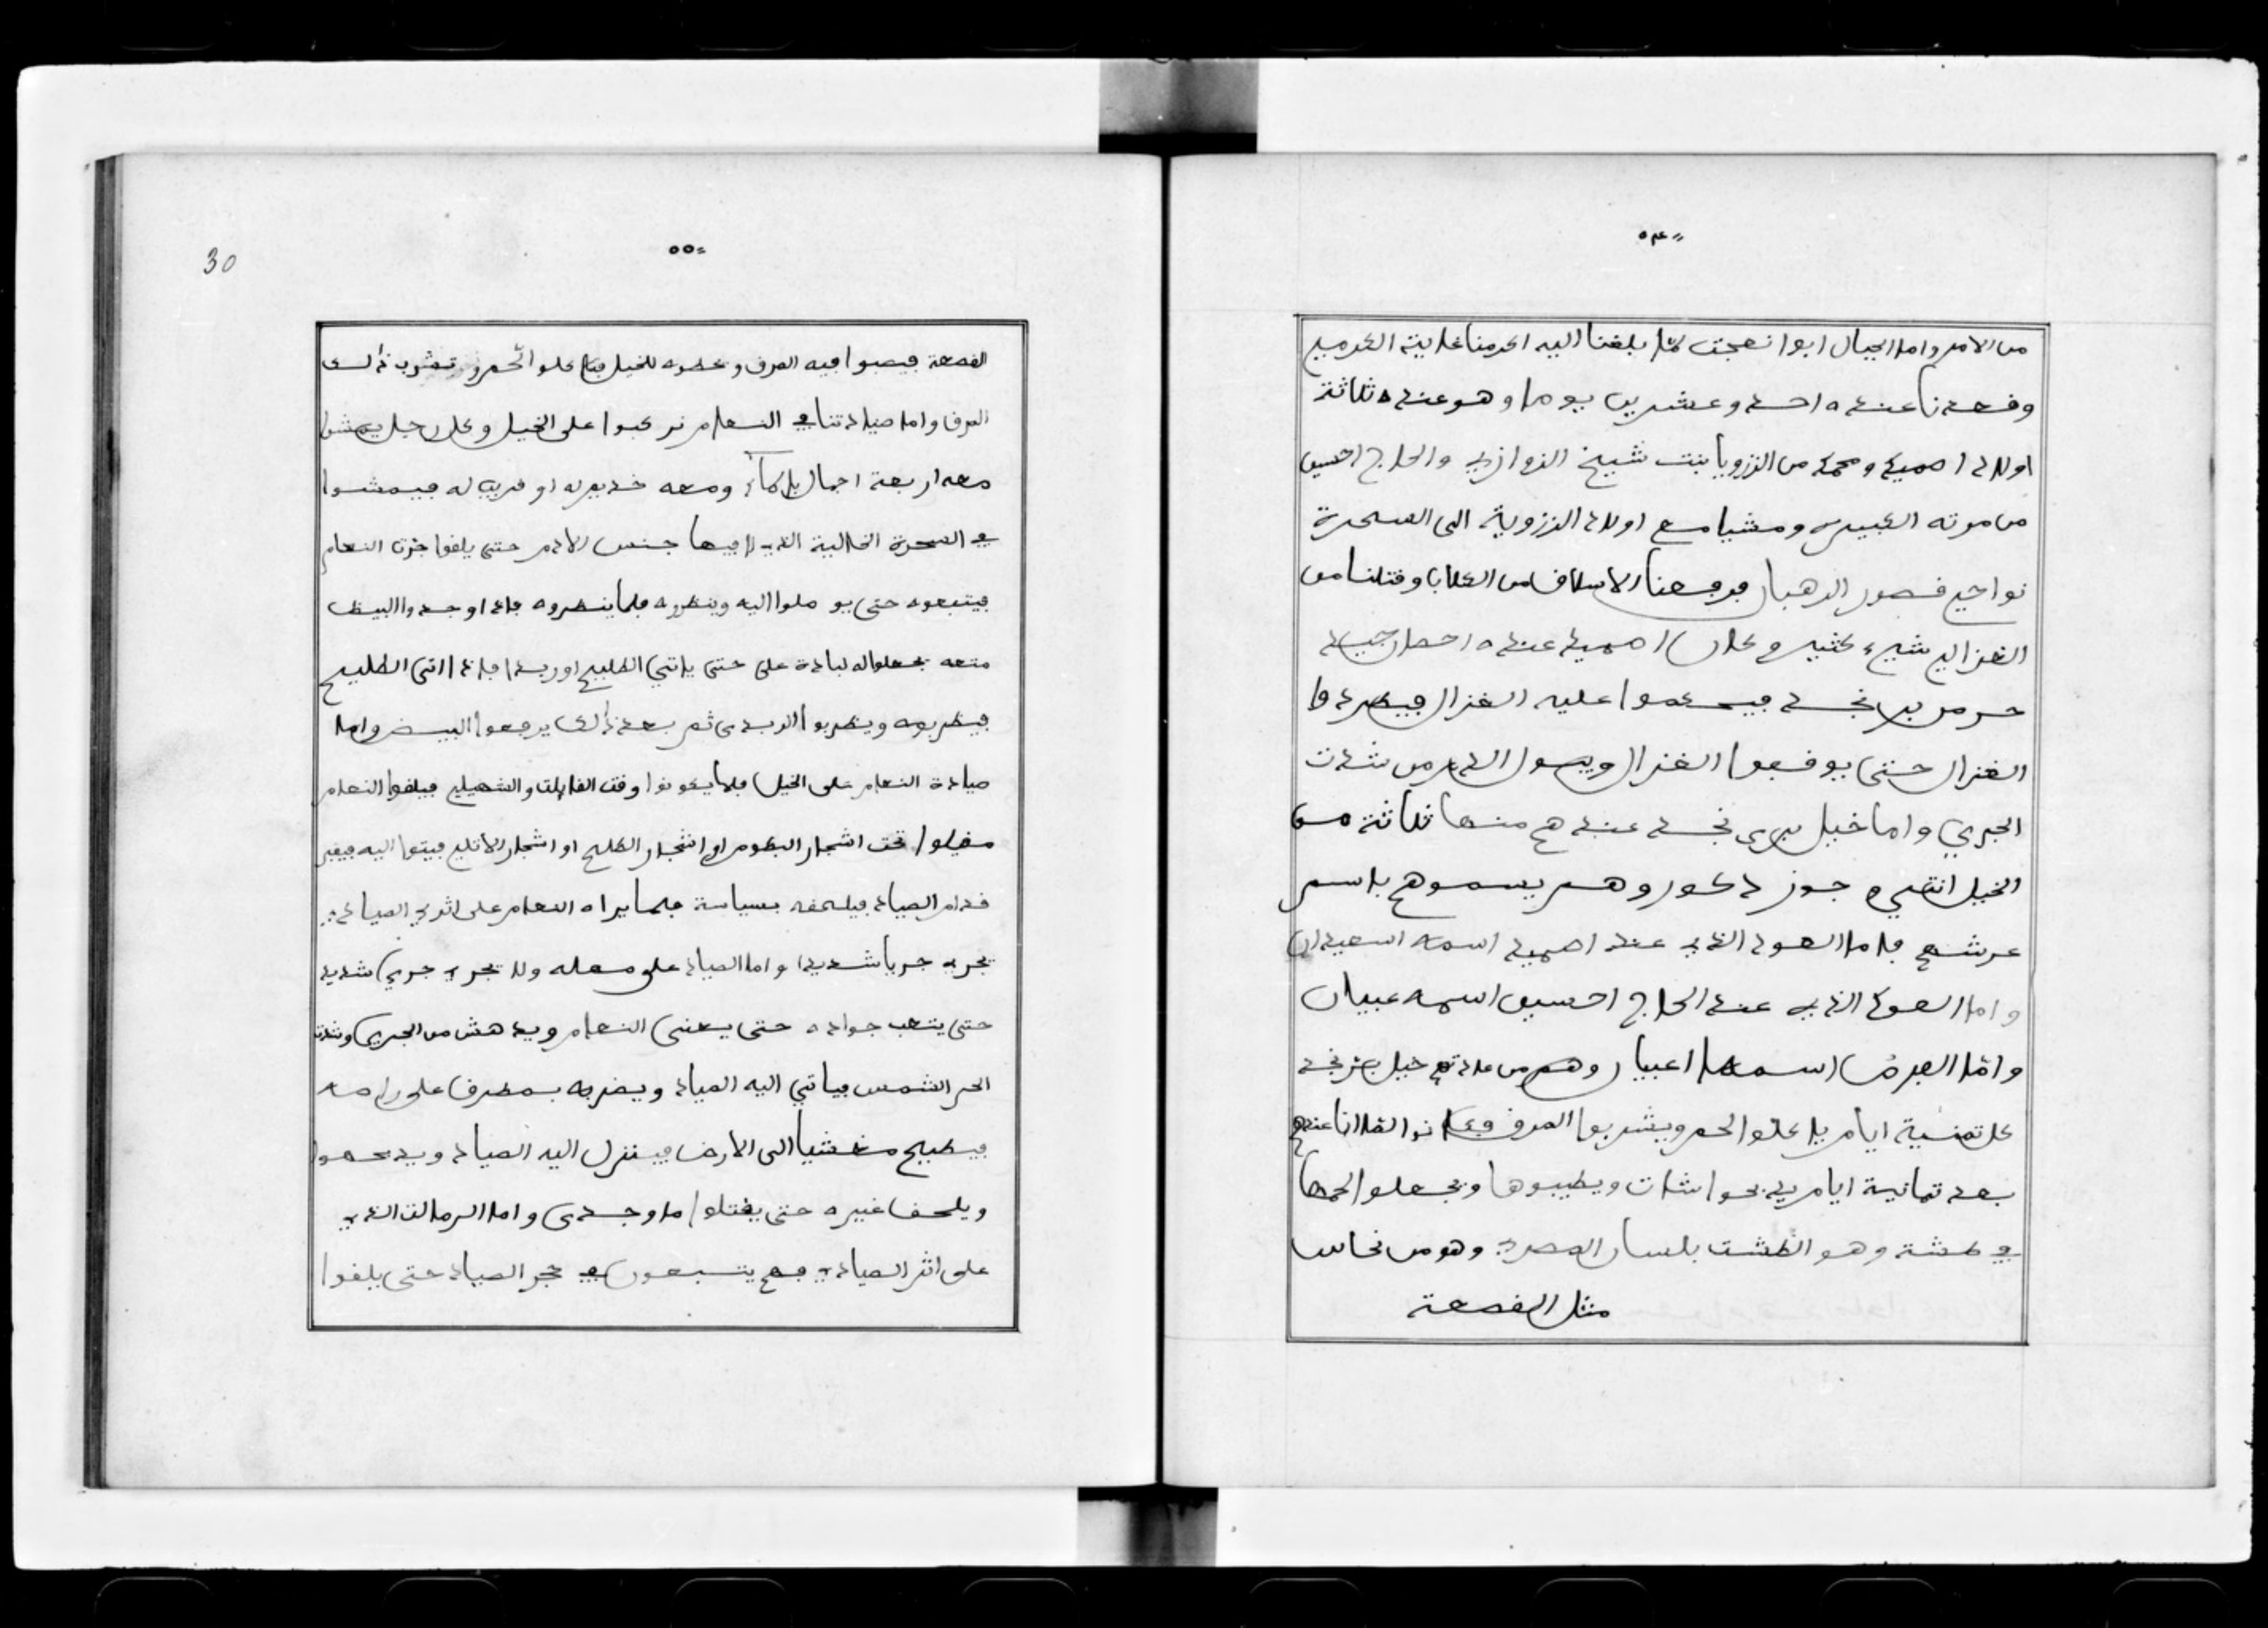 ٥٤
من الامر واما الجبال ابوا نعجت لمّا بلغنا اليه اكرمنا غاية الكرم
وقعدنا عنده احد وعشرين يوما وهو عنده ثلاثة
اولاد احميد ومحمد من الزرويا بنت شيخ الزوازي والحاج احسين
من موته الكبيره ومشيا مع اولاد الزروية الى السحرة
نواحي قصور الرهبان فرفعنا الاسلاق من الكلابا وقتلنا من
الغزالي شيء كثير وكان احميد عنده احصان جيد
حر من بر نجد فيحكموا عليه الغزال فيطردها
الغزال حتى يوقفوا الغزال ويبول الدم من شدت
الجري واما خيل بري نجد عندهم منها ثلاثة من
الخيل انثى و جوز ذكور وهم يسموهم باسم
عرشهم فاما العود الذي عند احميد اسمه اسعيدان
واما العود الذي عند الحاج احسين اسمه عبيان
وامّا الفرس اسمها اعبيان وهم من عادتهم خيل بر نجد
كل ثمنية ايام ياكلوا الحم ويشربوا المرق وكانوا لقاانا عندهم
بعد ثمانية ايام يذبحوا شات ويطيبوها ويجعلوا لحمها
في طشة وهو الطشت بلسان المصري وهو من نحاس
مثل القصعة
٥٥
30
القصعة فيصبوا فيه المرق وعطوه للخيل فياكلوا الحم وتشرب ذالك
المرق واما صيادتنا في النعام نركبوا على الخيل وكل رجل يمشوا
معه اربعة اجمال بالمآء ومعه خديمه او قريب له فيمشوا
في السحرة الخالية الذي لا فيها جنس الادم حتى يلقوا جرت النعام
فيتبعوه حتى يوصلوا اليه وينظروه فلما ينظروه فاذا وجدوا البيض
متعه يجعلوا له لبادة على حتى ياتي الظليم او ربدا فاذا اتى الظليم
فيظربوه ويظربوا الربدى ثم بعد ذالك يرفعوا البيض واما
صيادة النعام على الخيل فلما يكونوا وقت القايلت والشهيلي فيلقوا النعام
مقيلوا تحت اشجار البطوم او اشجار الطلح او اشجار الاثلي فيتوا اليه فيفر
قدام الصياد فيلحقه بسياسة فلما يراه النعام على اثري الصيادي
يجري جريا شديدا واما الصياد على مهله ولا يجري جري شديد
حتى يتعب جواده حتى يعيى النعام ويدهش من الجري وشدت
الحر الشمس فياتي اليه الصياد ويضربه بمطرق على راسه
فيطيح مغشيا الى الارض فينزل اليه الصياد ويذبحهوا
ويلحق غيره حتى يقتلوا ما وجدى واما الزمالت الذي
على اثر الصيادي فهم يتبعون في جر الصياد حتى يلقوا